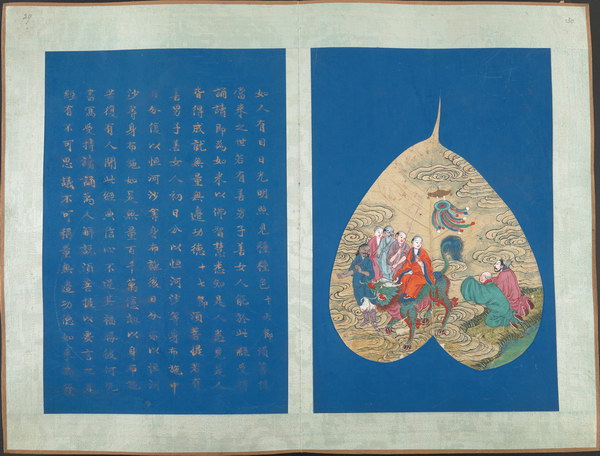 如人有目日光明照見種種色 十七節 須菩提
當來之世若有善男子善女人能於此經受持
讀誦即為如來以佛智慧悉知是人悉見是人
皆得成就無量無邊功德 須菩提若有
善男子善女人初日分以恒河沙等身布施中
日分復以恒河沙等身布施後日分亦以恒河
沙等身布施如是無量百千萬億劫以身布施
若復有人聞此經典信心不逆其福勝彼何況
書寫受持讀誦為人解說須菩提以要言之是
經有不可思議不可稱量無邊功德如來為發